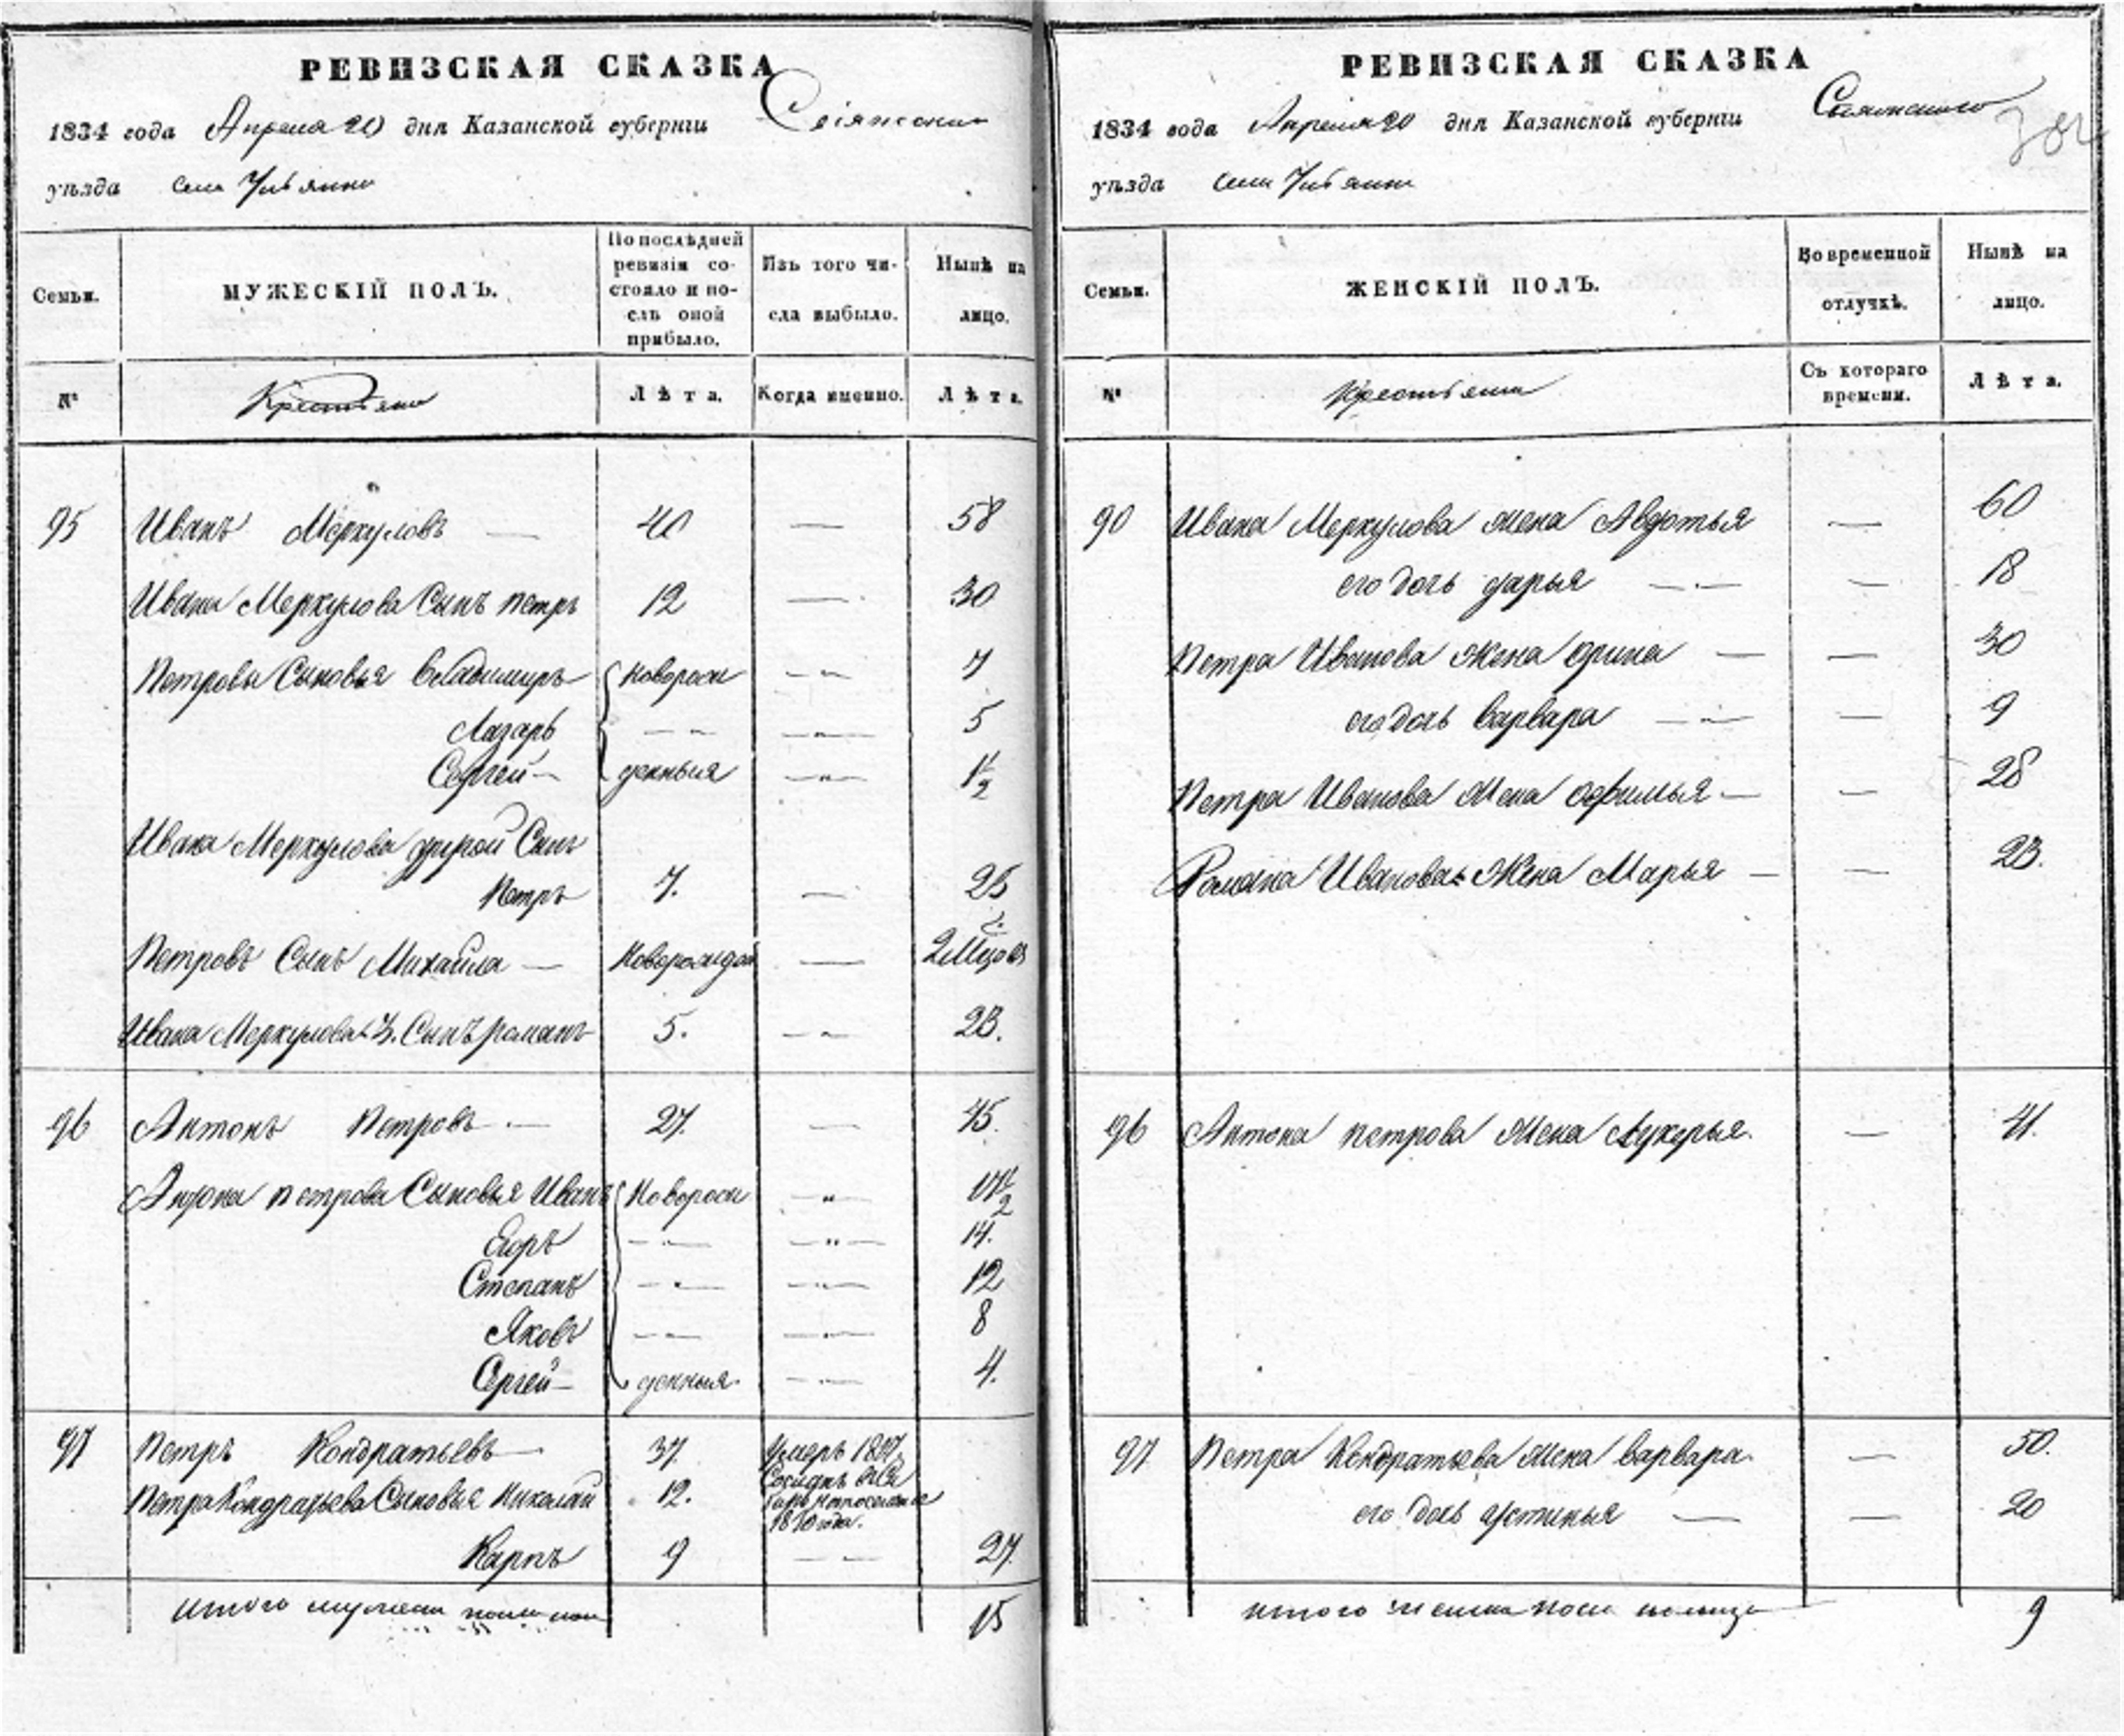 РЕВИЗСКАЯ СКАЗКА
1834 года Апреля 20 дня Казанской губернiи Свiяжскаго
уѣзда села
Семьи.
МУЖЕСКIЙ ПОЛЪ.
По послѣдней
ревизiи со-
стояло и по-
слѣ оной
прибыло.
Изъ того чи-
сла выбыло.
Нынѣ на
лицо.
№
Крестьяне
Лѣта.
Когда именно.
Лѣта.
95 Иванъ Меркуловъ — 40 — 58
Ивана Меркулова Сынъ петръ 12 — 30
Петровы Сыновья Владимиръ новорож 7
Лазарь — 5
Сергей — денныя 1 1/2
Ивана Меркулова другой Сынъ
Петръ 7. — 25
Петровъ Сынъ Михайла — Новорожден —
Ивана Меркулова 3. Сынъ романъ 5. — 23.
96 Антонъ Петровъ — 27. — 45.
Антона петрова Сыновья Иванъ Новорож 17 1/2
Егоръ — 14.
Степанъ — 12
Яковъ — 8
Сергей — денныя 4.
97 Петръ Кондратьевъ — 37. Умеръ
Петра Кондратьева Сыновья Николай 12.
Карпъ 9 — 27.
итого мужеска пола 15
РЕВИЗСКАЯ СКАЗКА
1834 года Апреля 20 дня Казанской губернiи Свiяжскаго
уѣзда села
Семьи.
ЖЕНСКIЙ ПОЛЪ.
Во временной
отлучкѣ.
Нынѣ на
лицо.
№
Крестьяне
Съ котораго
времени.
Лѣта.
90 Ивана Меркулова жена Авдотья — 60
его дочь дарья — 18
Петра Иванова Жена орина — 30
его дочь варвара — 9
Петра Иванова Жена офимья — 28
Романа Иванова Жена Марья — 23.
96 Антона петрова Жена Лукерья. — 41.
97 Петра Кондратьева Жена варвара. — 50.
его дочь устинья — 20
итого женска пола 9